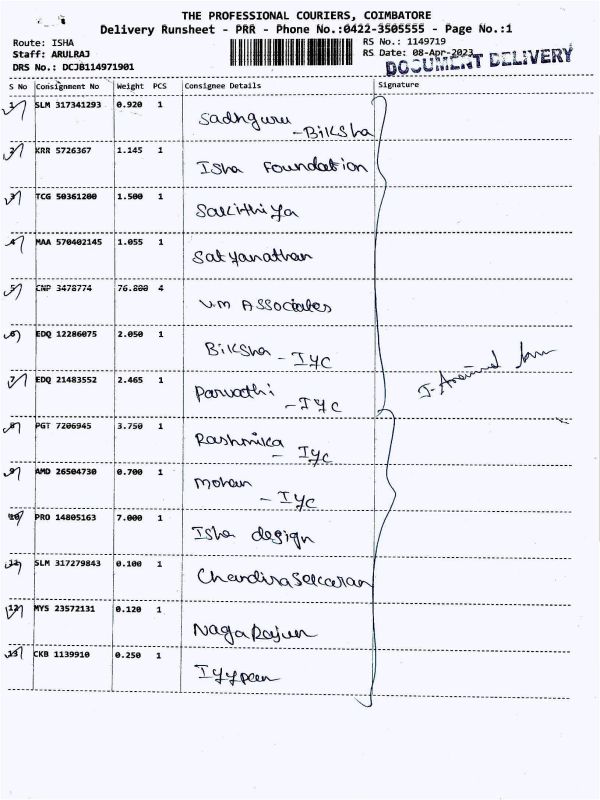 THE PROFESSIONAL COURIERS, COIMBATORE
Delivery Runsheet - PRR - Phone No.:0422-3505555 - Page No.:1
Route: ISHA
Staff: ARULRAJ
DRS No.: DCJB114971901
RS No.: 1149719
RS Date: 08-Apr-2023
DOCUMENT DELIVERY
S No Consignment No Weight PCS Consignee Details Signature
1 SLM 317341293 0.920 1 Sadhguru - Biksha
2 KRR 5726367 1.145 1 Isha Foundation
3 TCG 50361200 1.500 1 Sakithiya
4 MAA 570402145 1.055 1 Satyanathan
5 CNP 3478774 76.800 4 V.M Associates
6 EDQ 12286075 2.050 1 Biksha - IYC
7 EDQ 21483552 2.465 1 Parvathi - IYC
8 PGT 7206945 3.750 1 Rashmika - IYC
9 AMD 26504730 0.700 1 Mohan - IYC
10 PRO 14805163 7.000 1 Isha design
11 SLM 317279843 0.100 1 Chandirasekaran
12 MYS 23572131 0.120 1 Nagarajun
13 CKB 1139910 0.250 1 Iyypan